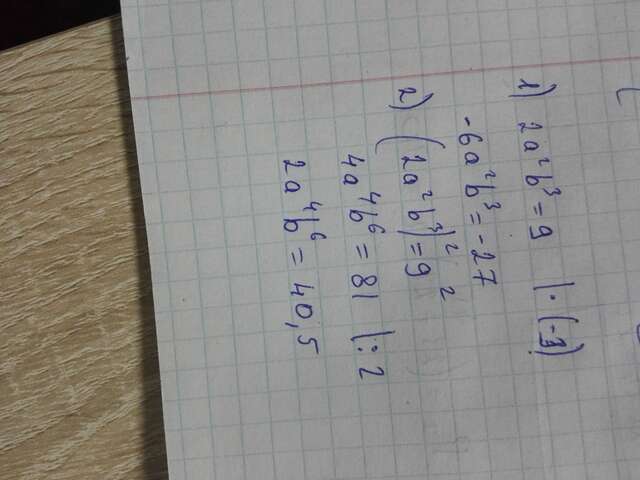 1) 2a²b³ = 9 | · (-3)
-6a²b³ = -27
2) (2a²b³)² = 9²
4a⁴b⁶ = 81 | : 2
2a⁴b⁶ = 40,5